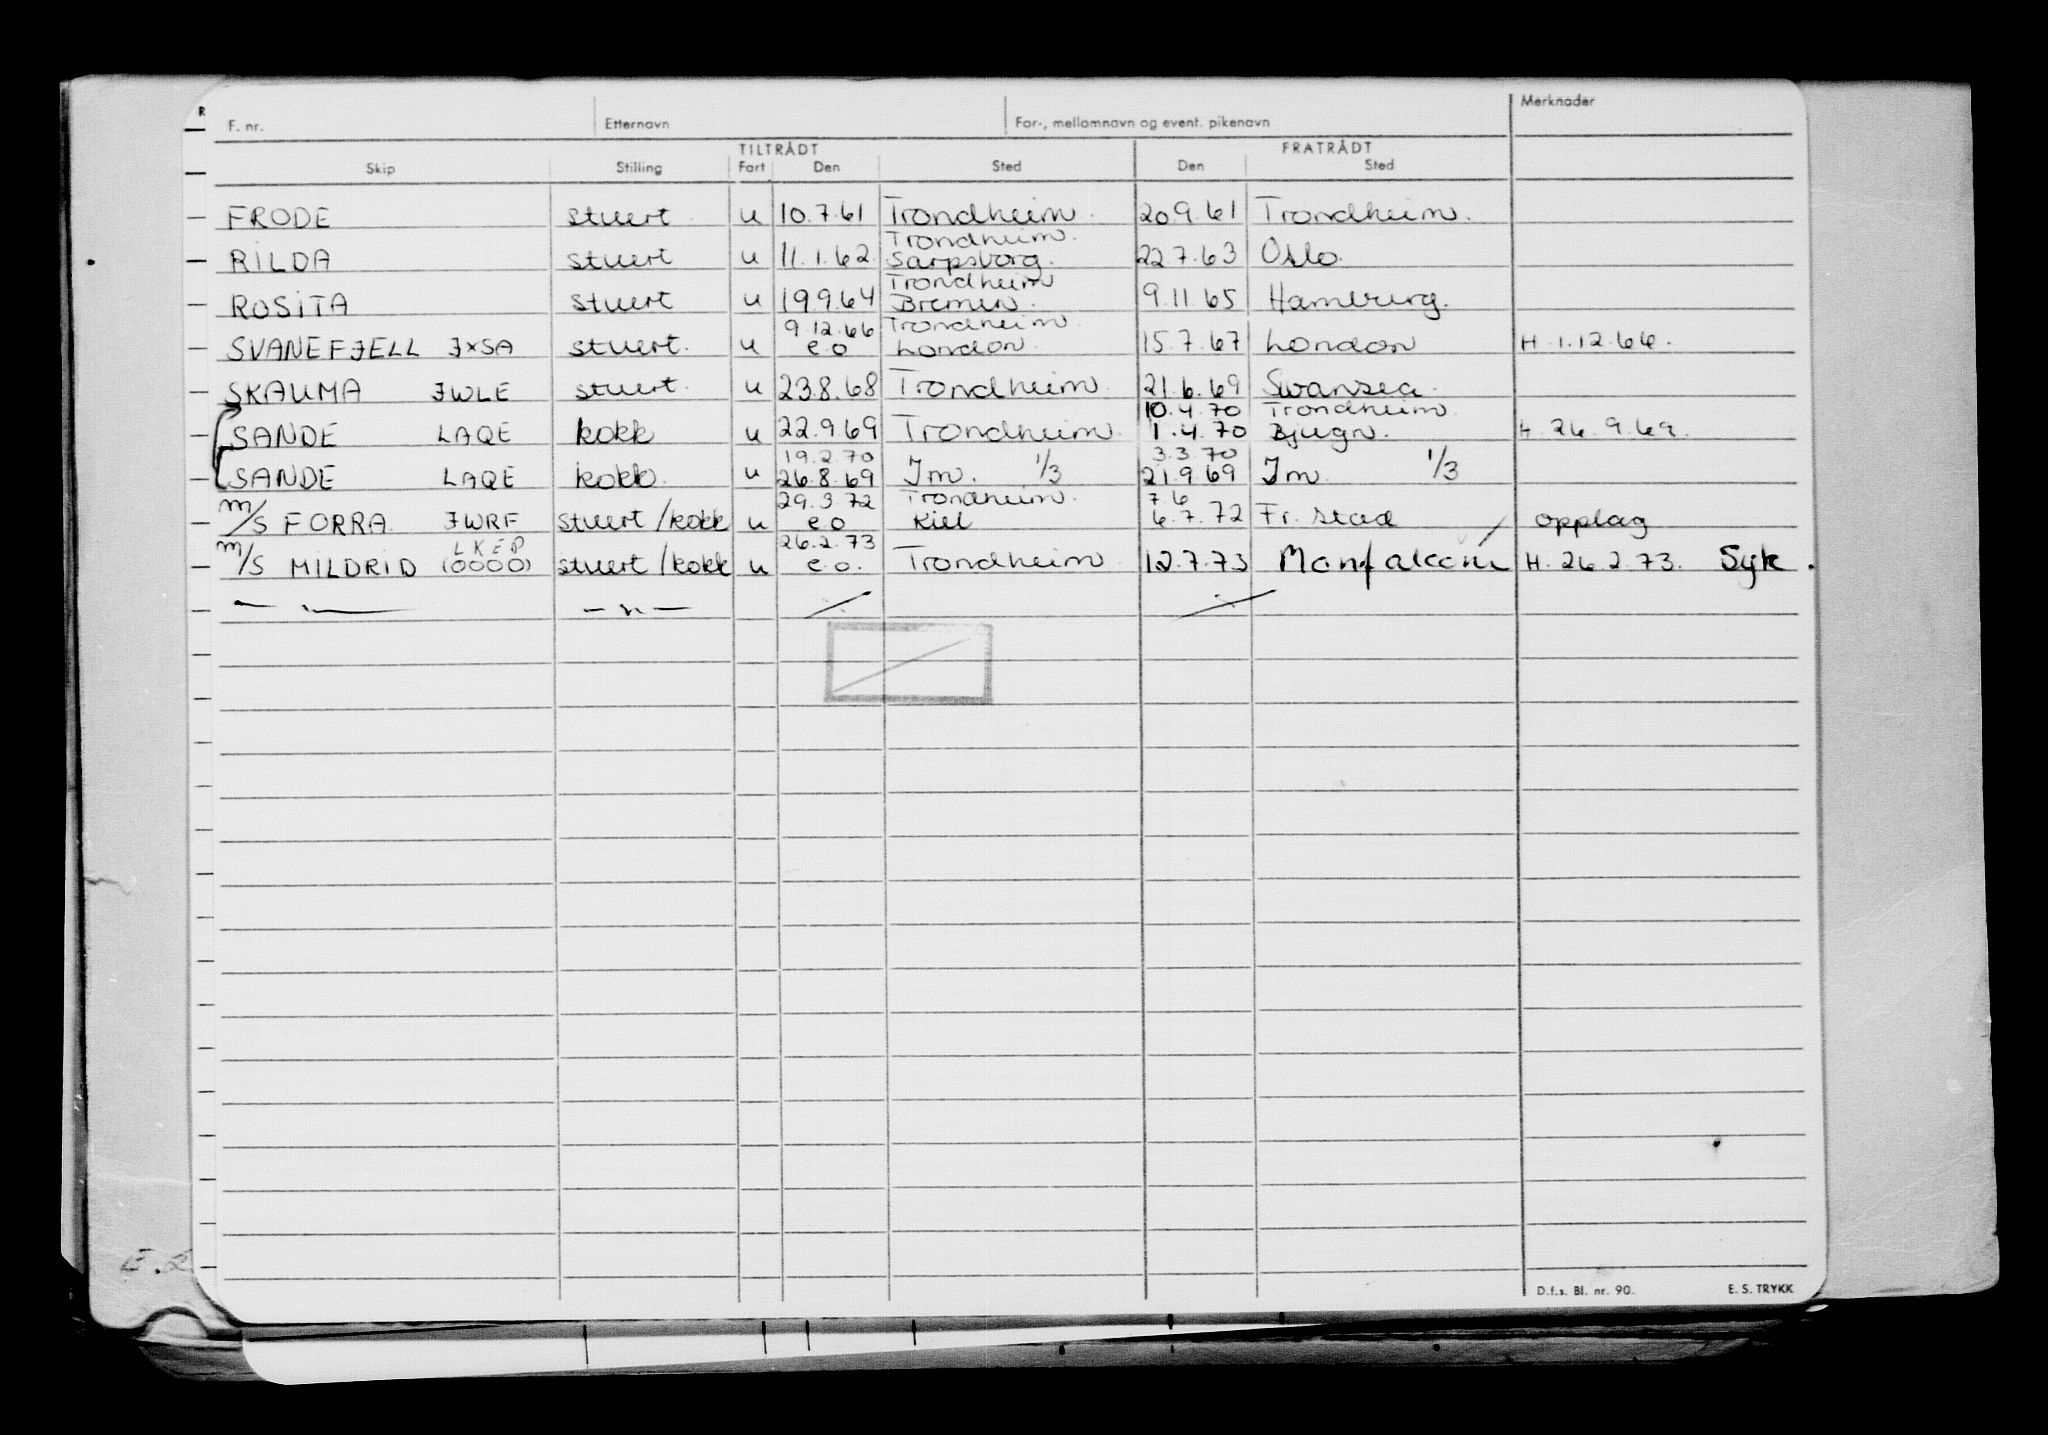 R
F. nr. Etternavn For-, mellomnavn og event. pikenavn Merknader
TILTRÅDT FRATRÅDT
Skip Stilling Fart Den Sted Den Sted
FRODE stuert. u 10.7.61 Trondheim. 20.9.61 Trondheim.
Trondheim.
RILDA stuert u 11.1.62. Sarpsborg. 22.7.63 Oslo.
Trondheim
ROSITA stuert u 19.9.64 Bremen. 9.11.65 Hamburg.
9.12.66 Trondheim.
SVANEFJELL JXSA stuert. u e.o London. 15.7.67 London H. 1.12.66.
SKAUMA JWLE stuert. u 23.8.68 Trondheim. 21.6.69 Swansea.
10.4.70 Trondheim.
SANDE LAQE kokk u 22.9.69 Trondheim. 1.4.70 Bjugn. H. 26.9.69.
19.2.70 3.3.70
SANDE LAQE kokk. u 26.8.69 Jm. 1/3 21.9.69 Jm 1/3
29.3.72 Trondheim. 7.6
m/s FORRA JWRF stuert/kokk u e o Kiel 6.7.72 Fr.stad / opplag
LKEP 26.2.73
m/s MILDRID (0000) stuert/kokk u e.o. Trondheim 12.7.73 Monfalcone H. 26.2.73. Syk.
— " — — " —
E.
D.f.s. Bl. nr. 90. E. S. TRYKK